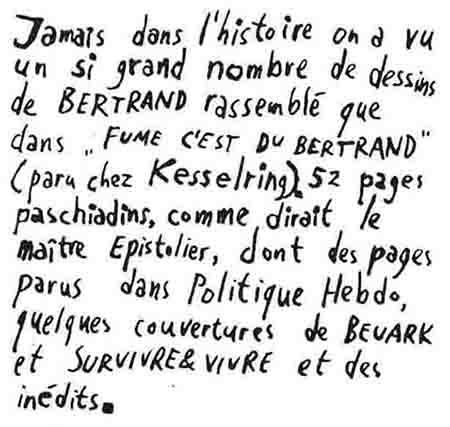 Jamais dans l'histoire on a vu
un si grand nombre de dessins
de BERTRAND rassemblé que
dans „FUME C'EST DU BERTRAND"
(paru chez Kesselring). 52 pages
paschiadins, comme dirait le
maître Epistolier, dont des pages
parus dans Politique Hebdo,
quelques couvertures de BEUARK
et SURVIVRE & VIVRE et des
inédits.